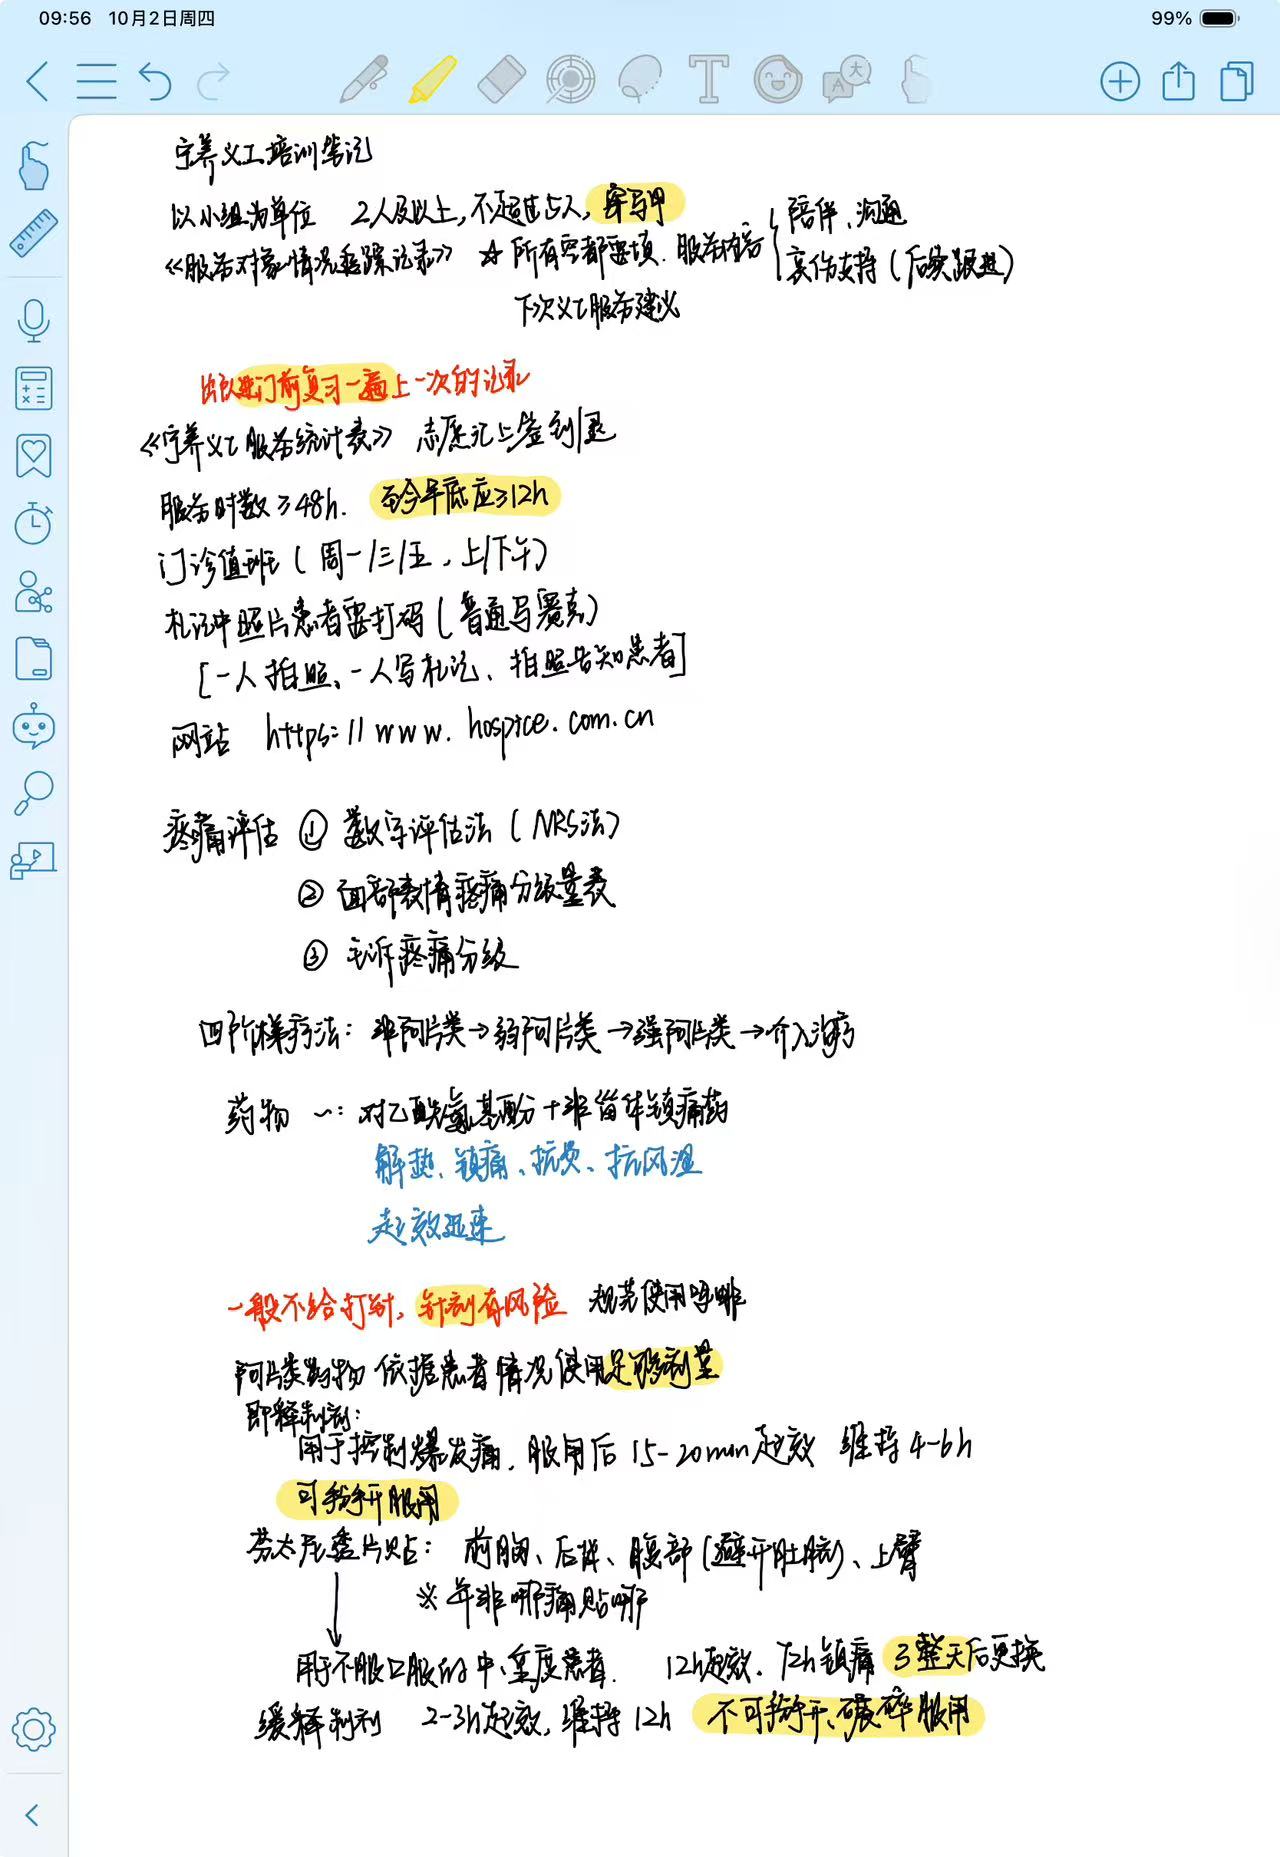 09:56 10月2日周四
99%
宁养义工培训笔记
以小组为单位 2人及以上,不超过5人,穿马甲
陪伴、沟通
《服务对象情况追踪记录》 ☆ 所有空都要填. 服务内容
哀伤支持(后续跟进)
下次义工服务建议
出队进门前复习一遍上一次的记录
《宁养义工服务统计表》 志愿汇上签到/退
服务时数≥48h. 至今年底应≥12h
门诊值班(周一/三/五,上/下午)
札记中照片患者要打码(普通马赛克)
[一人拍照、一人写札记、拍照告知患者]
网站 https://www.hospice.com.cn
疼痛评估 ① 数字评估法(NRS法)
② 面部表情疼痛分级量表
③ 主诉疼痛分级
四阶梯疗法: 非阿片类→弱阿片类→强阿片类→介入治疗
药物 一: 对乙酰氨基酚+非甾体镇痛药
解热、镇痛、抗炎、抗风湿
起效迅速
一般不给打针, 针剂有风险 规范使用吗啡
阿片类药物 依据患者情况使用足够剂量
即释制剂:
用于控制爆发痛, 服用后15-20min起效 维持4-6h
可掰开服用
芬太尼透皮贴: 前胸、后背、腹部(避开肚脐)、上臂
※ 并非哪痛贴哪
用于不能口服的中、重度患者. 12h起效. 72h镇痛 3整天后更换
缓释制剂 2-3h起效, 维持12h 不可掰开、碾碎服用